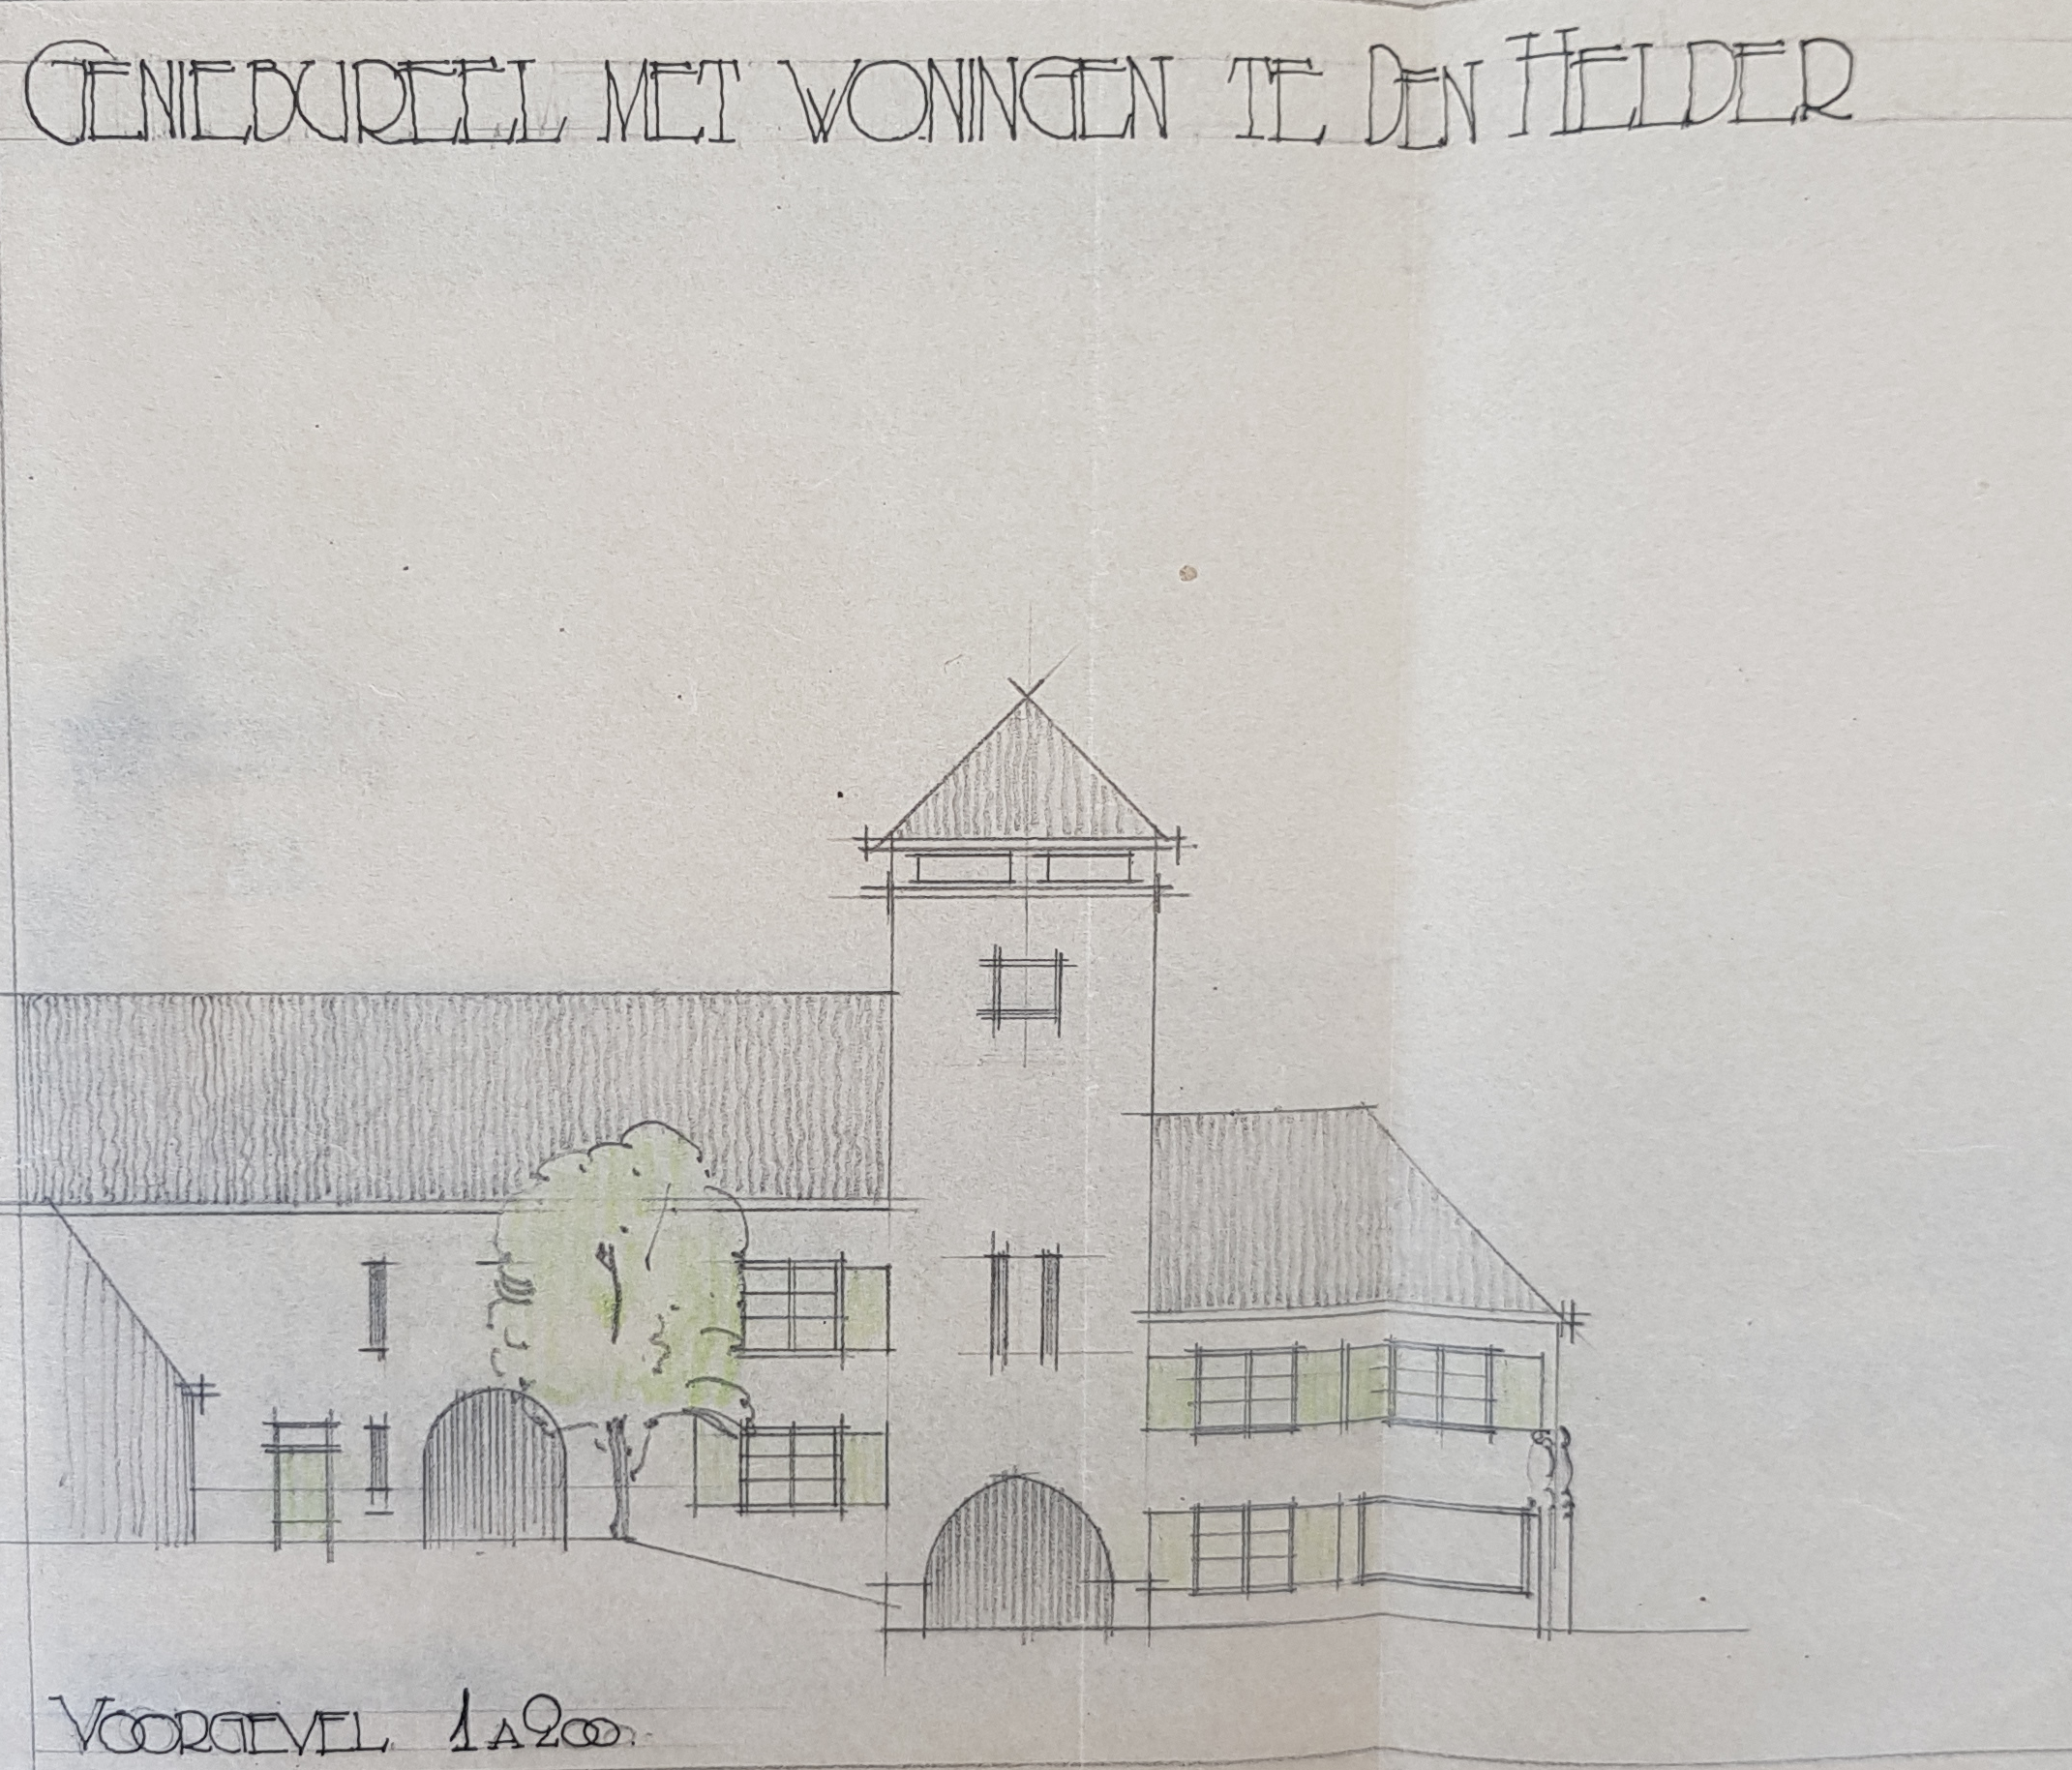 GENIEBUREEL MET WONINGEN TE DEN HELDER
VOORGEVEL 1 A 200.